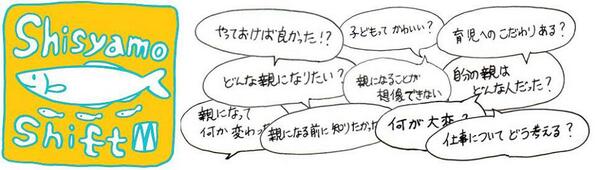 Shisyamo
Shift
やっておけば良かった!?
子どもって かわいい?
育児への こだわりある?
どんな親になりたい?
親になることが
想像できない
自分の親は
どんな人だった?
親になって
何か変わっ
親になる前に知りたかった
何が大変?
仕事について どう考える?